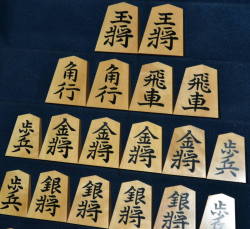 玉將 王將
角行 角行 飛車 飛車
歩兵 金將 金將 金將 金將 歩兵
歩兵 銀將 銀將 銀將 銀將 歩兵